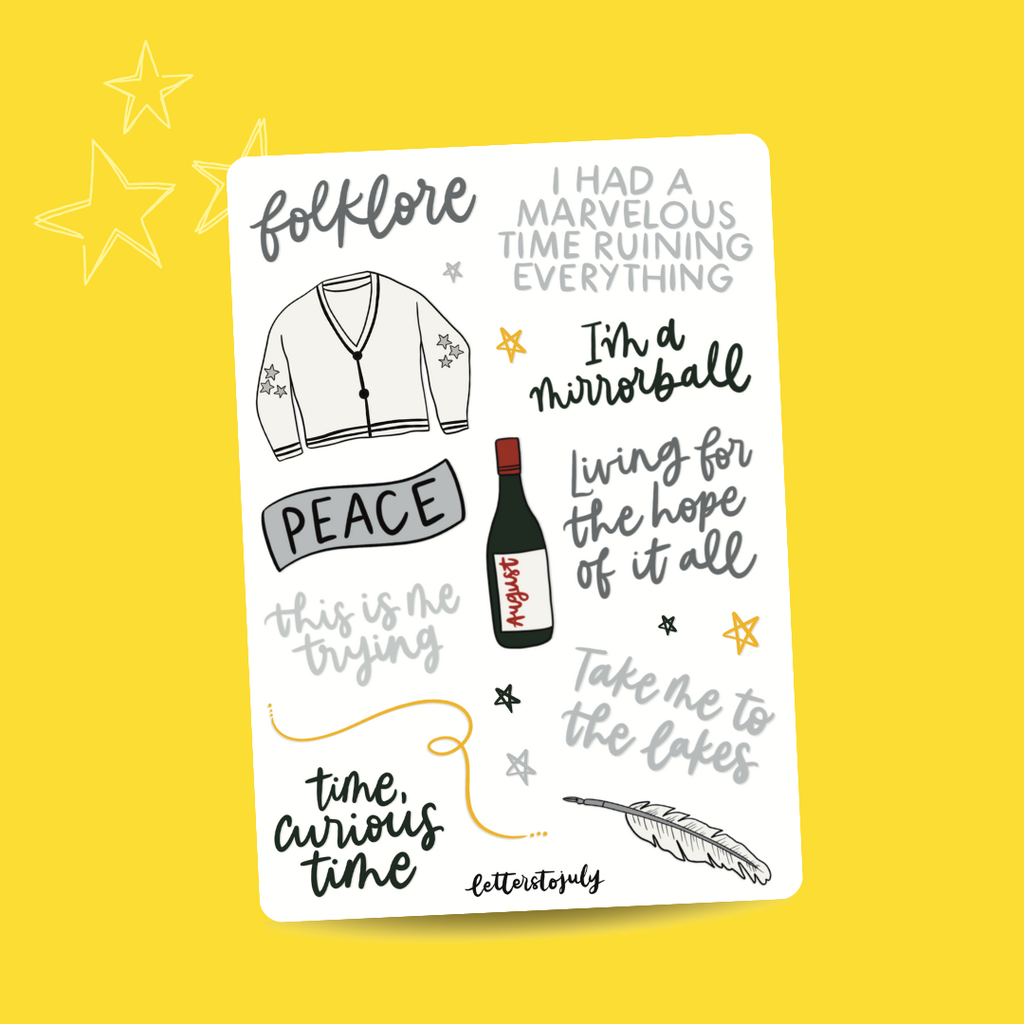 folklore
I HAD A
MARVELOUS
TIME RUINING
EVERYTHING
I'm a
mirrorball
PEACE
August
Living for
the hope
of it all
this is me
trying
Take me to
the lakes
time,
curious
time
letterstojuly